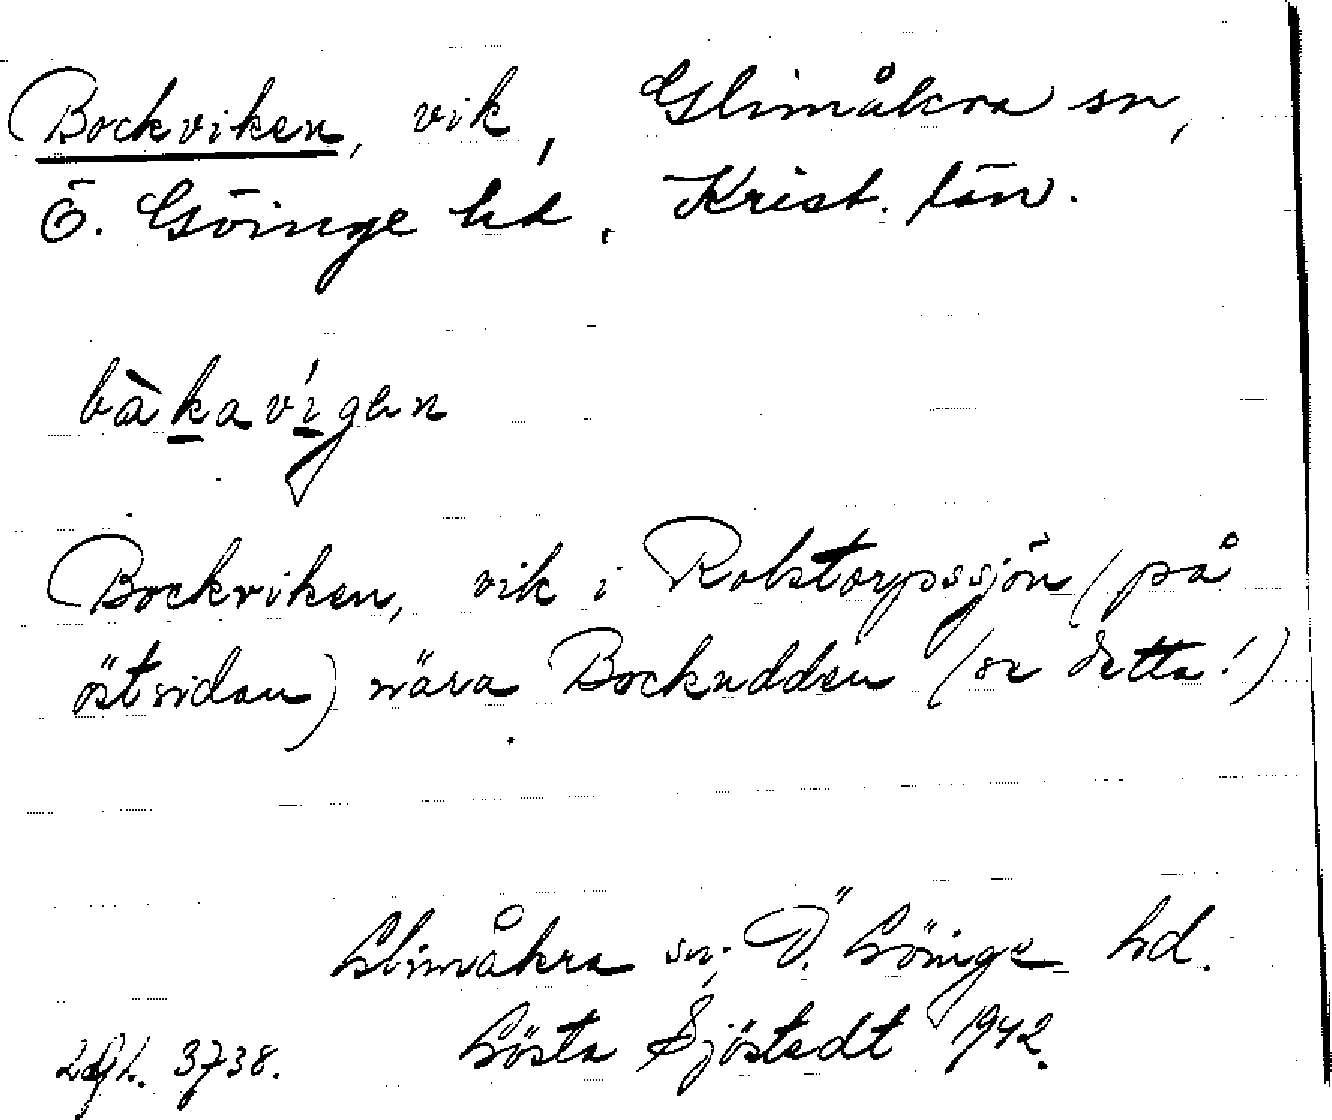 Bockviken, vik, Glimåkra sn,
Ö. Göinge hd. Krist. län.
bàkavígen
Bockviken, vik i Rolstorpssjön (på
östsidan) nära Bockudden (se detta!)
Glimåkra sn; Ö. Göinge hd.
3738. Gösta Sjöstedt 1942.